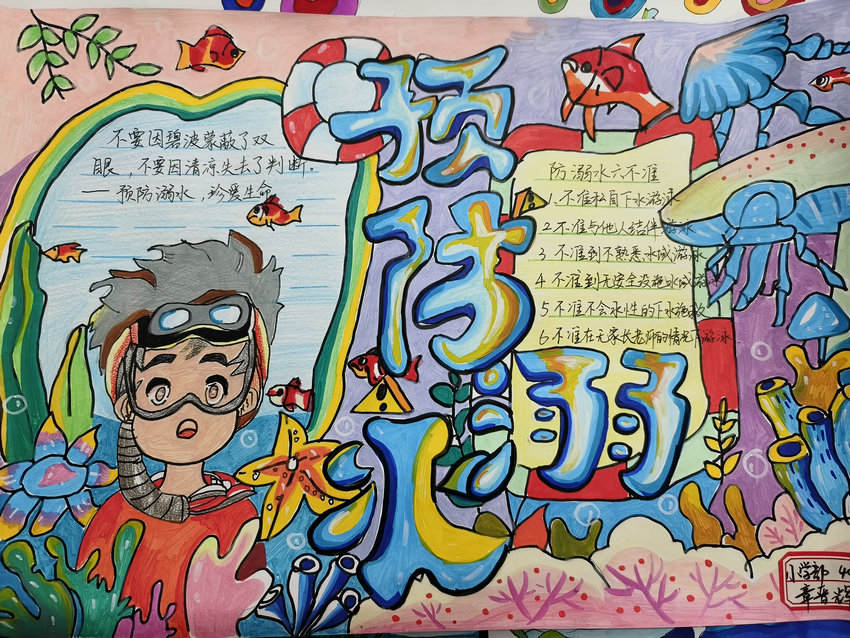 不要因碧波蒙蔽了双
眼，不要因清凉失去了判断。
——预防溺水，珍爱生命
预防溺水
防溺水六不准
1.不准私自下水游泳
2.不准与他人结伴游泳
3.不准到不熟悉水域游泳
4.不准到无安全设施水域游泳
5.不准不会水性的下水施救
6.不准在无家长老师的情况下游泳.
小学部 4
章晋